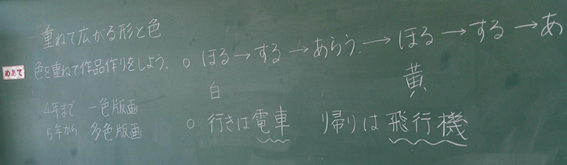 重ねて広がる形と色
めあて
色を重ねて作品作りをしよう。
4年まで 一色版画
5年から 多色版画
○ ほる→する→あらう→ほる→する→あ
白 黄
○ 行きは電車 帰りは飛行機